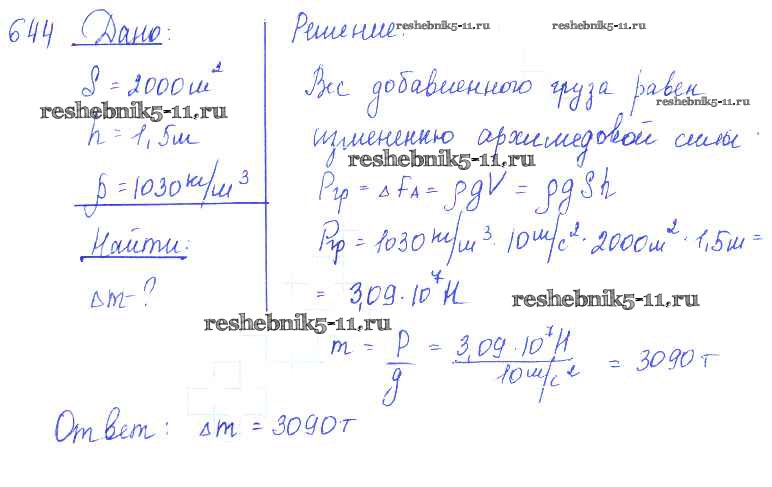 644 Дано:
S = 2000м²
h = 1,5м
ρ = 1030 кг/м³
Найти:
Δm - ?
Решение:
Вес добавленного груза равен
изменению архимедовой силы.
Pгр = ΔFA = ρgV = ρgSh
Pгр = 1030 кг/м³ · 10 м/с² · 2000м² · 1,5м =
= 3,09 · 10⁷ Н
m = P/g = 3,09 · 10⁷ Н / 10 м/с² = 3090 т
Ответ: Δm = 3090 т
reshebnik5-11.ru
reshebnik5-11.ru
reshebnik5-11.ru
reshebnik5-11.ru
reshebnik5-11.ru
reshebnik5-11.ru
reshebnik5-11.ru